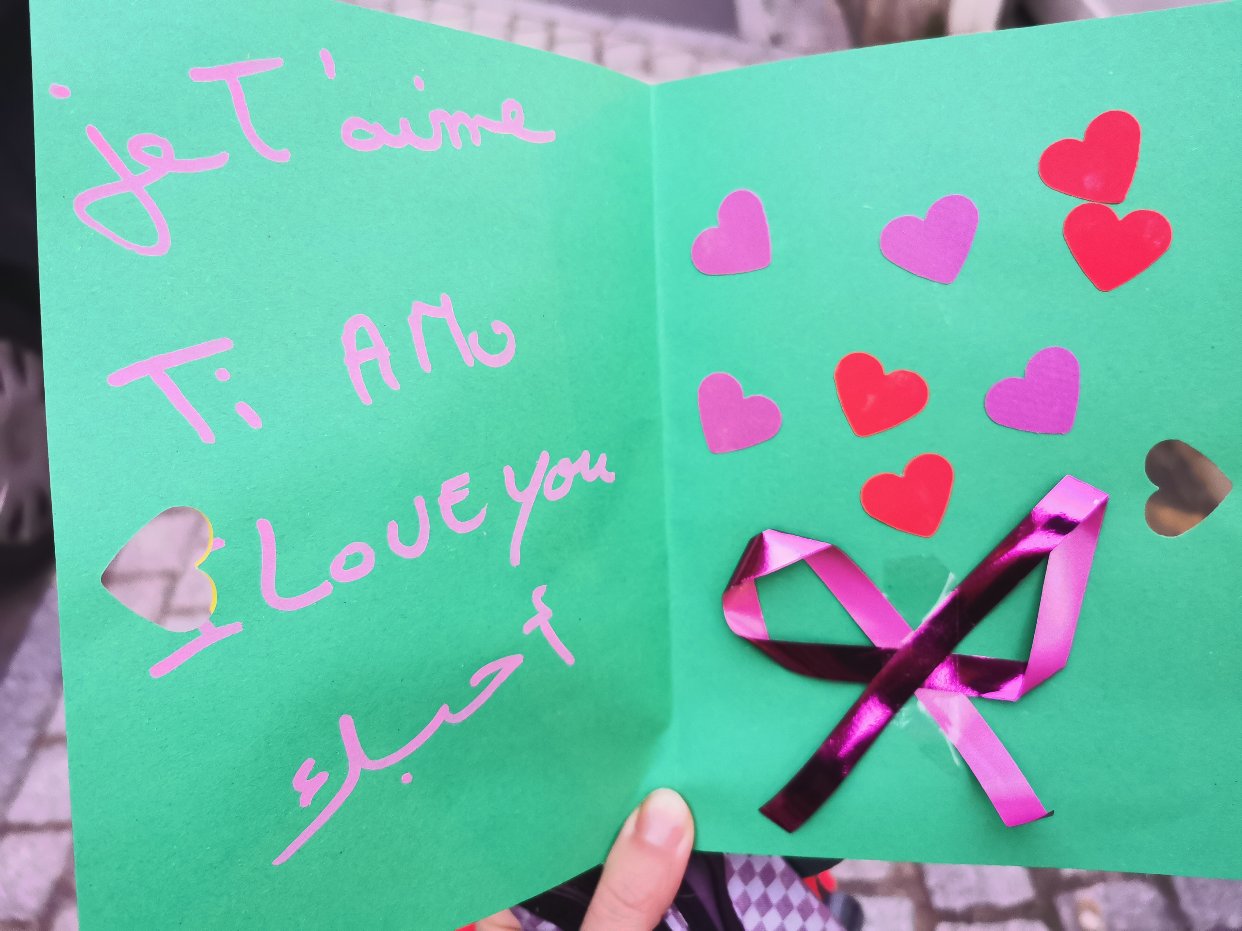 je T'aime
Ti AMo
I LOVE You
أحبك